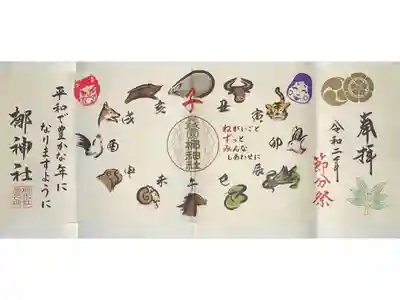 奉拝
令和二年
節分祭
子
丑
寅
卯
辰
巳
午
未
申
酉
戌
亥
ねがいごと
ずっと
みんな
しあわせに
平和で豊かな年に
なりますように
梛神社